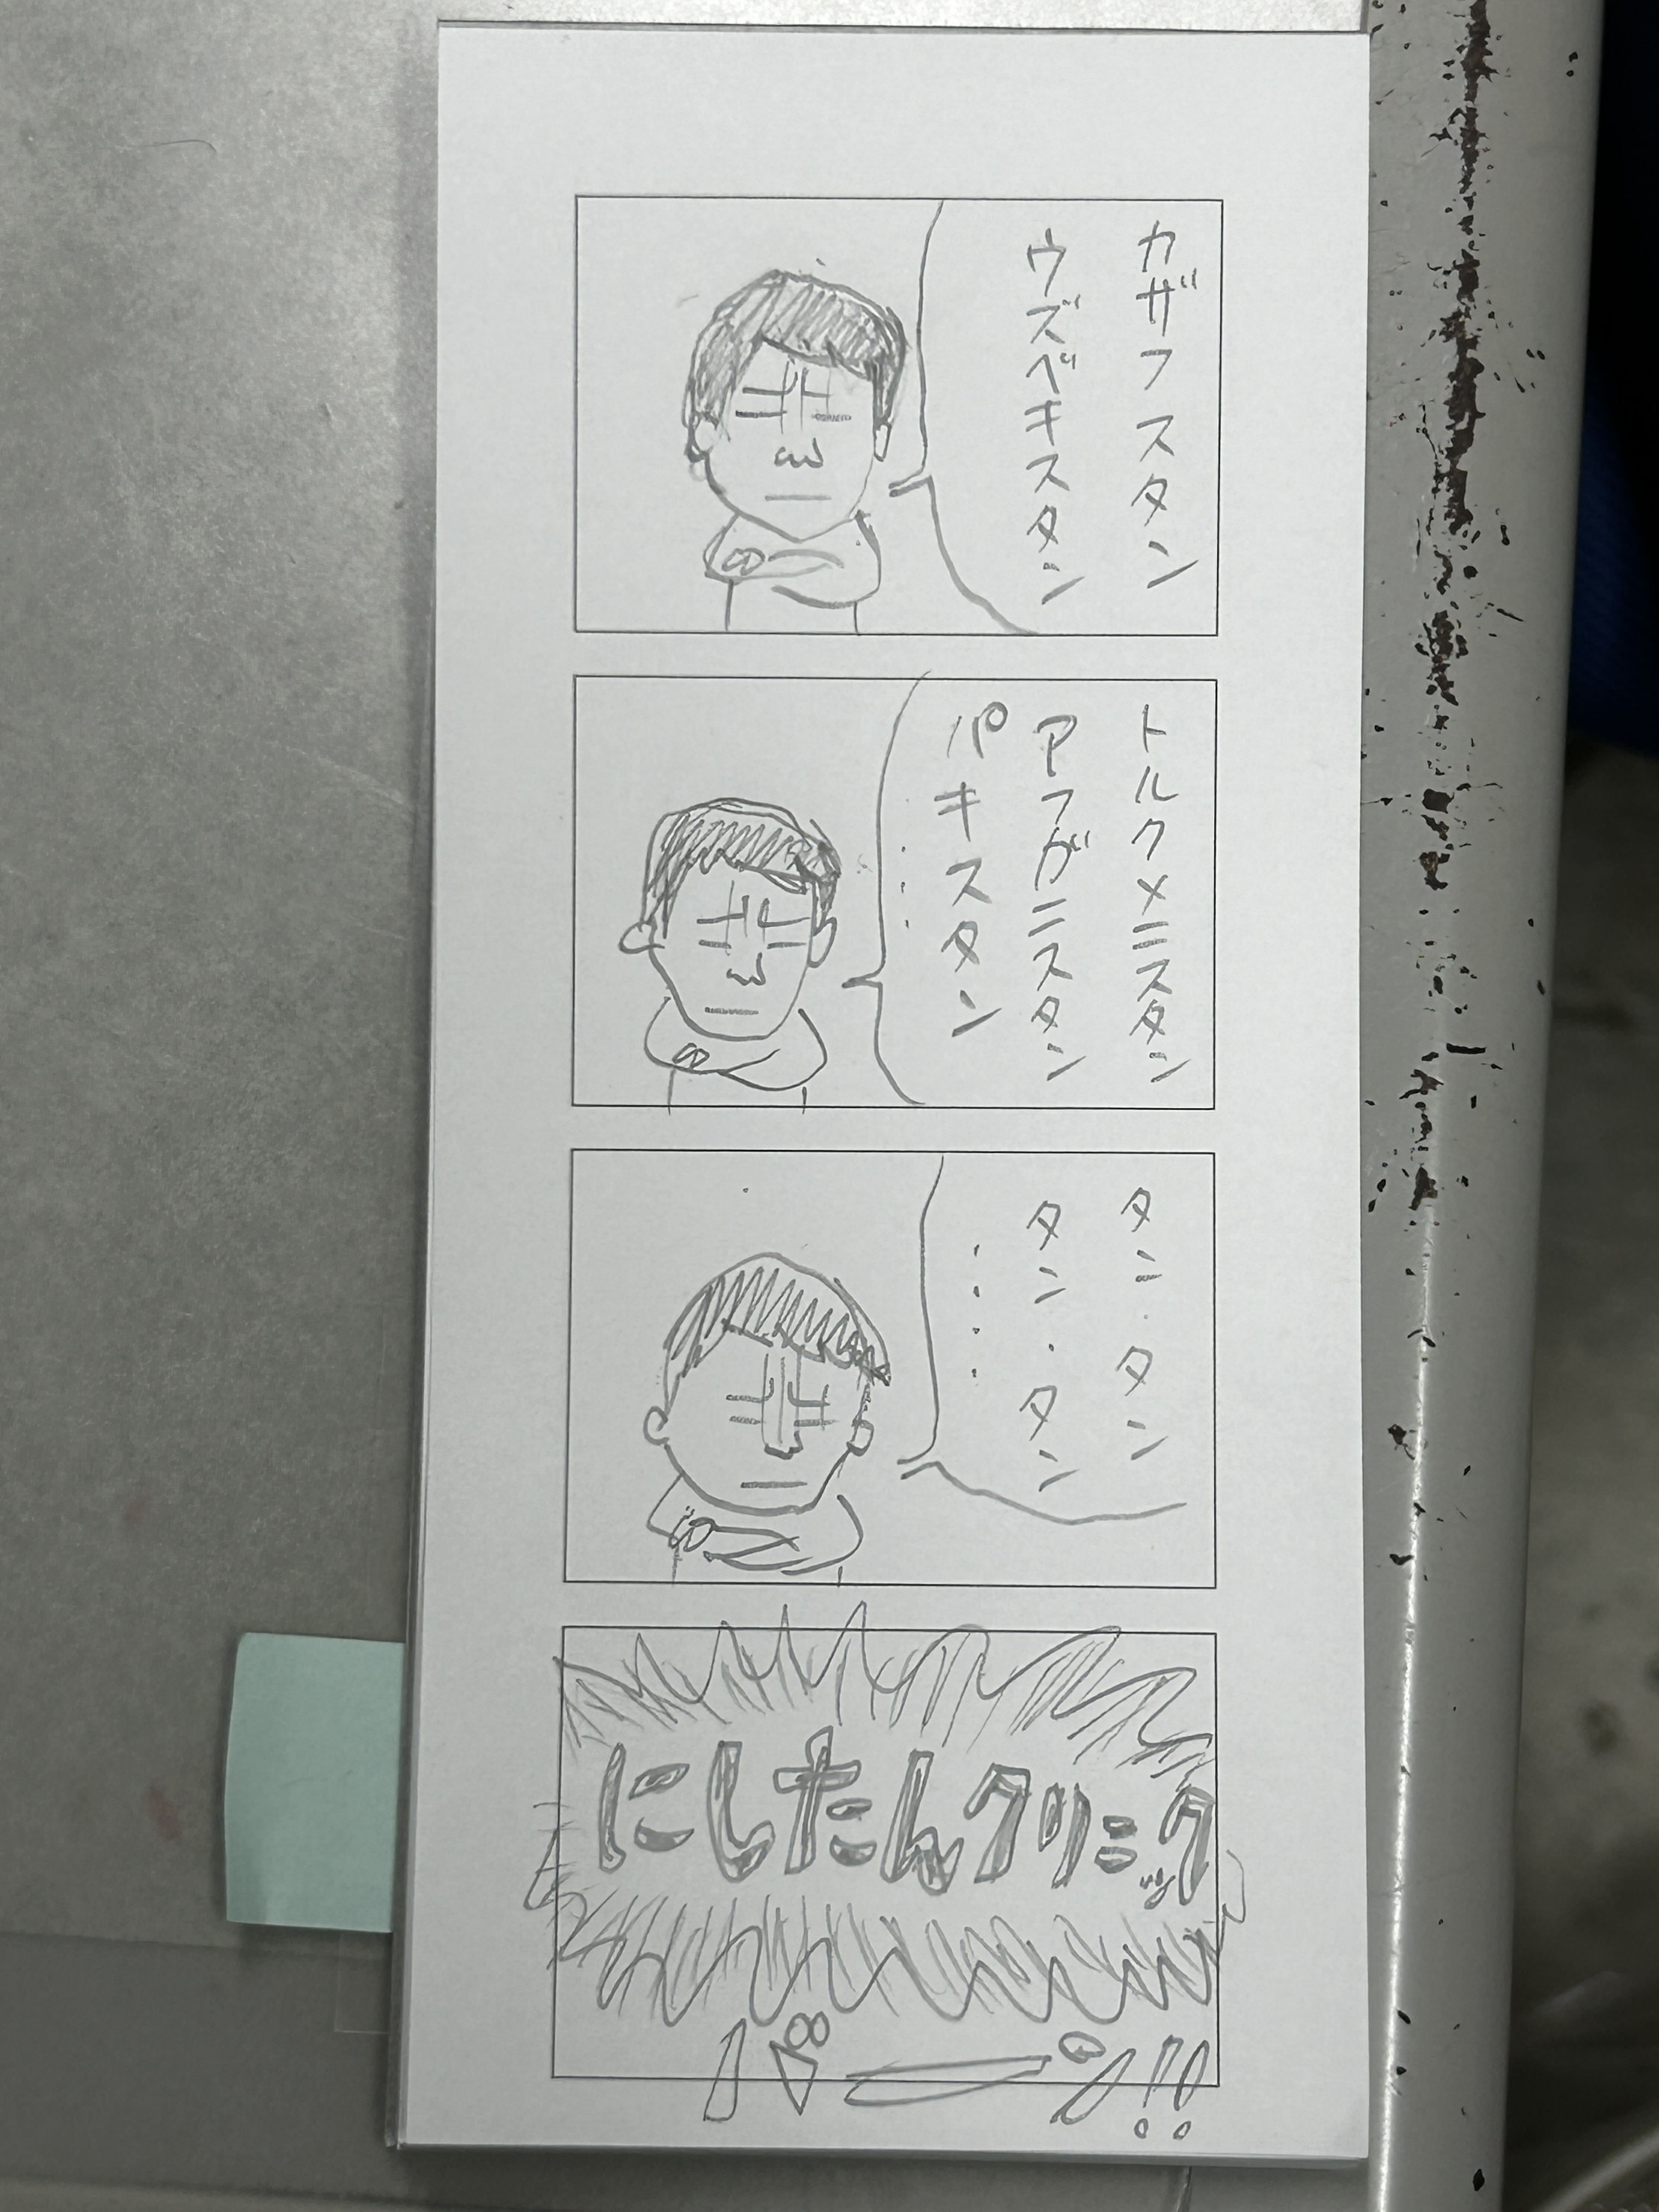 カザフスタン
ウズベキスタン
トルクメニスタン
アフガニスタン
パキスタン
・・・・
タン・タン
タン・タン
・・・・
にしたんクリニック
バーン!!